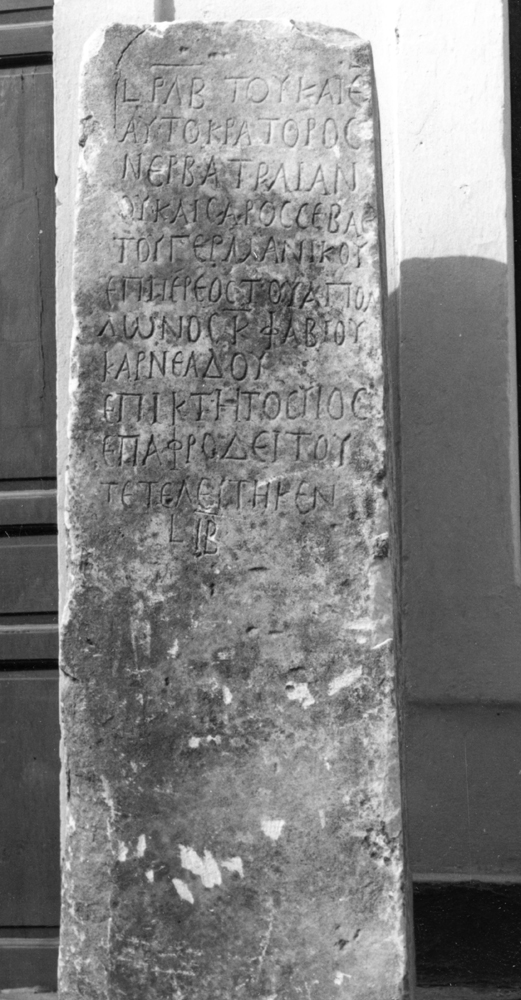 LΡΛΒ ΤΟΥΚΑΙΕ
ΑΥΤΟΚΡΑΤΟΡΟϹ
ΝΕΡΒΑΤΡΑΙΑΝ
ΟΥΚΑΙϹΑΡΟϹϹΕΒΑϹ
ΤΟΥΓΕΡΜΑΝΙΚΟΥ
ΕΠΙΙΕΡΕΟϹΤΟΥΑΠΟΛ
ΛΩΝΟϹΚΦΛΑΒΙΟΥ
ΚΑΡΝΕΑΔΟΥ
ΕΠΙΚΤΗΤΟϹΥΙΟϹ
ΕΠΑΦΡΟΔΕΙΤΟΥ
ΤΕΤΕΛΕΥΤΗΚΕΝ
LΙΒ